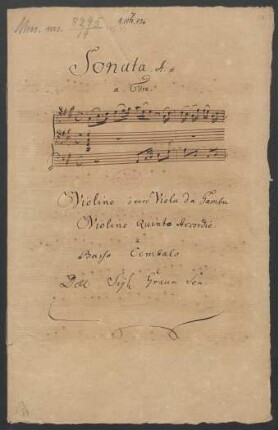 Mus. ms. 8295
19
Sonata A.#
a Tre.
Violino ò vero Viola da Gamba
Violino Quinto Accordio
è
Basso Cembalo
Dell Sigl. Graun Sen.